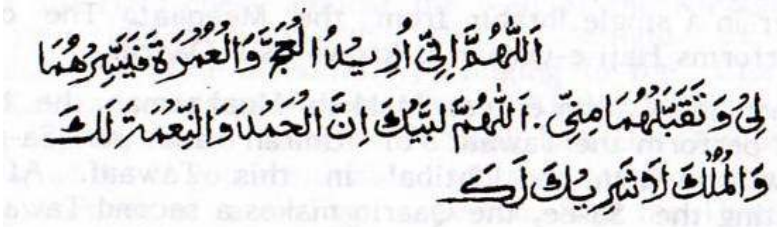 اَللّٰهُمَّ اِنِّيْ اُرِيْدُ الْحَجَّ وَالْعُمْرَةَ فَيَسِّرْهُمَا
لِيْ وَ تَقَبَّلْهُمَا مِنِّيْ ، اَللّٰهُمَّ لَبَّيْكَ اِنَّ الْحَمْدَ وَالنِّعْمَةَ لَكَ
وَالْمُلْكَ لَا شَرِيْكَ لَكَ